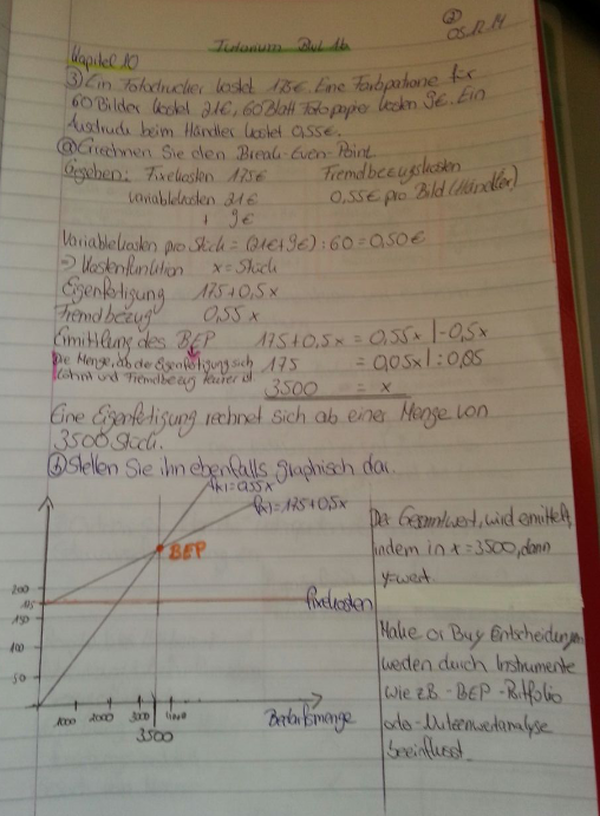 ②
05.12.14
Tutorium Bwl 1b
Kapitel 10
③ Ein Fotodrucker kostet 175€. Eine Farbpatrone für
60 Bilder kostet 21€, 60 Blatt Fotopapier kosten 9€. Ein
Ausdruck beim Händler kostet 0,55€.
ⓐ Errechnen Sie den Break-Even-Point.
Gegeben: Fixekosten 175€ Fremdbezugskosten
variablekosten 21€ 0,55€ pro Bild (Händler)
+ 9€
Variablekosten pro Stück = (21€+9€) : 60 = 0,50€
=> Kostenfunktion x = Stück
Eigenfertigung 175+0,5x
Fremdbezug 0,55x
Ermittlung des BEP 175+0,5x = 0,55x |-0,5x
Die Menge, ab der Eigenfertigung sich 175 = 0,05x |:0,05
lohnt und Fremdbezug teurer ist. 3500 = x
Eine Eigenfertigung rechnet sich ab einer Menge von
3500 Stück.
ⓑ Stellen Sie ihn ebenfalls graphisch dar.
f(x)=0,55x
f(x)=175+0,5x
BEP
200
175
150
100
50
Fixekosten
1000 2000 3000 4000
3500
Bedarfsmenge
Der Gesamtwert, wird ermittelt,
indem in x = 3500, dann
y=wert.
Make or Buy Entscheidungen
werden durch Instrumente
wie zB - BEP - Portfolio
oder - Nutzenwertanalyse
beeinflusst.